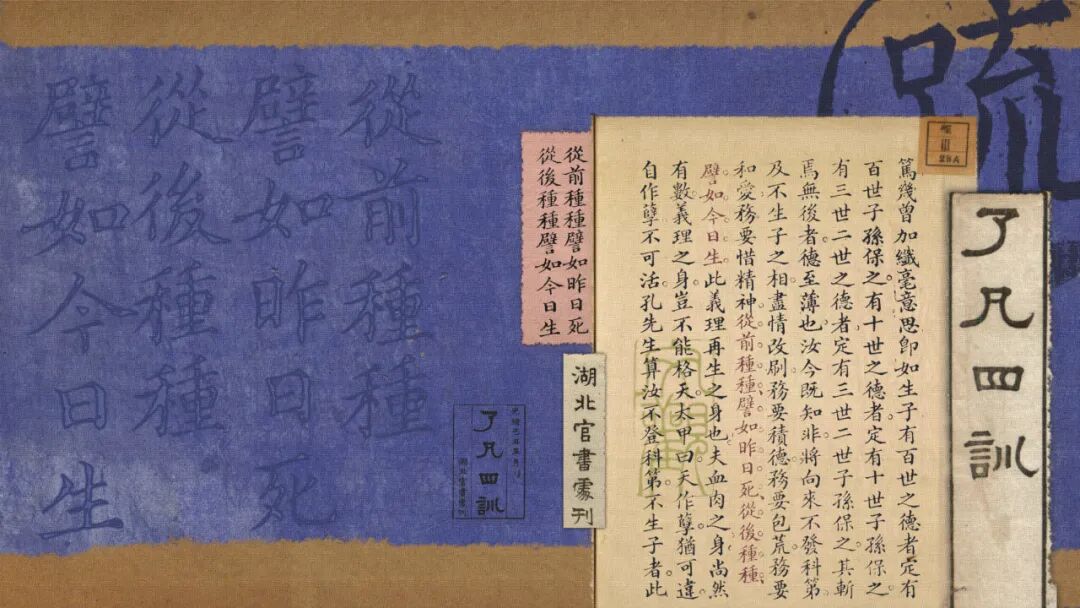 疏
了凡四訓
篤幾曾加纖毫意思即如生子有百世之德者定有
百世子孫保之有十世之德者定有十世子孫保之
有三世二世之德者定有三世二世子孫保之其斬
焉無後者德至薄也汝今既知非將向來不發科第
及不生子之相盡情改刷務要積德務要包荒務要
和愛務要惜精神從前種種譬如昨日死從後種種
譬如今日生此義理再生之身也夫血肉之身尚然
有數義理之身豈不能格天太甲曰天作孽猶可違
自作孽不可活孔先生算汝不登科第不生子者此
從前種種譬如昨日死
從後種種譬如今日生
湖北官書處刊
了凡四訓
湖北官書處刊
從前種種
譬如昨日死
從後種種
譬如今日生